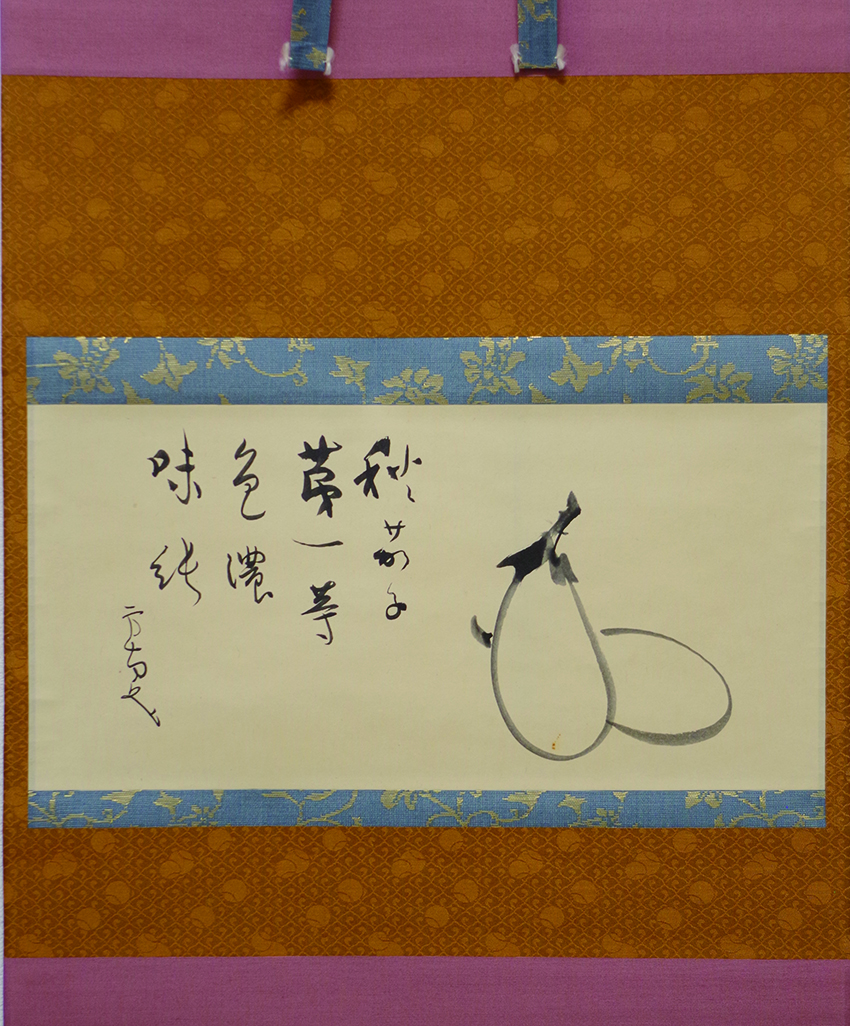 秋茄子
第一等
色濃
味純